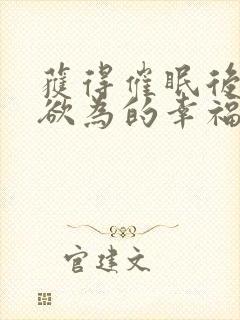 獲得催眠後
欲為的幸福
官建文